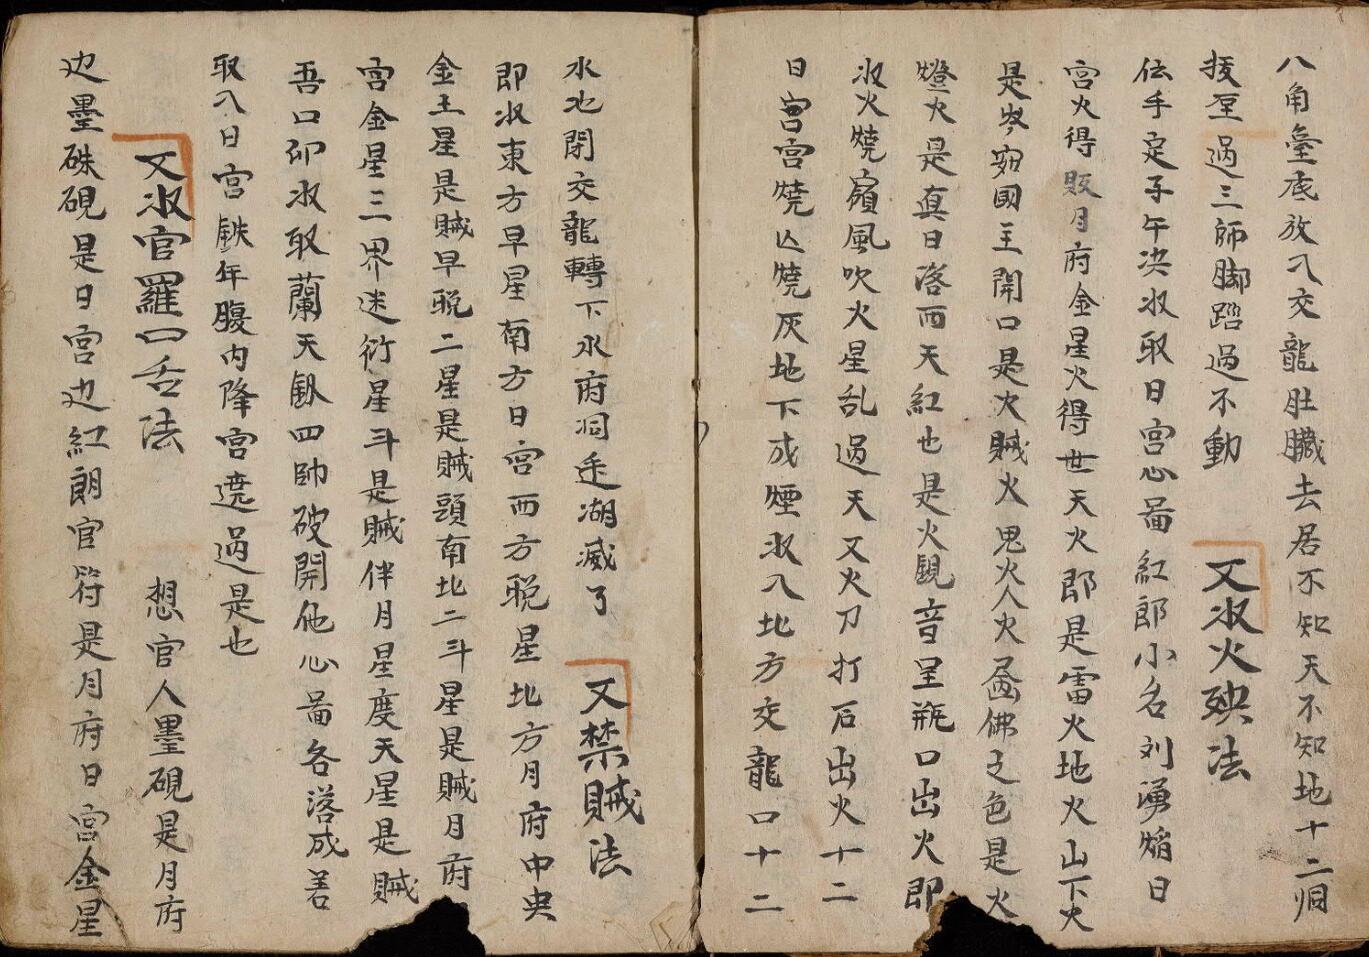 八角臺底放入交龍肚臟去居不知天不知地十二洞
抜至過三師脚踏過不動　又收火殃法
伝手定子午决收取日宮心啚紅郎小名刘湧焰日
宮火得販月府金星火得世天火郎是雷火地火山下火
是岑國王開口是火賊火鬼火人火佛之色是火
燈火是真日落而天紅也是火観音呈瓶口出火即
收火燒嶺風吹火星乱過天又火刀打石出火十二
日宮宮燒燒灰地下成煙收入北方交龍口十二
水地閉交龍轉下水府洞湖滅了　又禁賊法
即收東方早星南方日宮西方晩星北方月府中央
金王星是賊早晩二星是賊頭南北二斗星是賊月府
宮金星三界迷衍星斗是賊伴月星度天星是賊
吾口仰收取蘭天四帥破開他心啚各落成善
取入日宮鉄年腹内降宮遶過是也
又收官羅口舌法　想官人墨硯是月府
边墨硃硯是日宮边紅朗官符是月府日宮金星